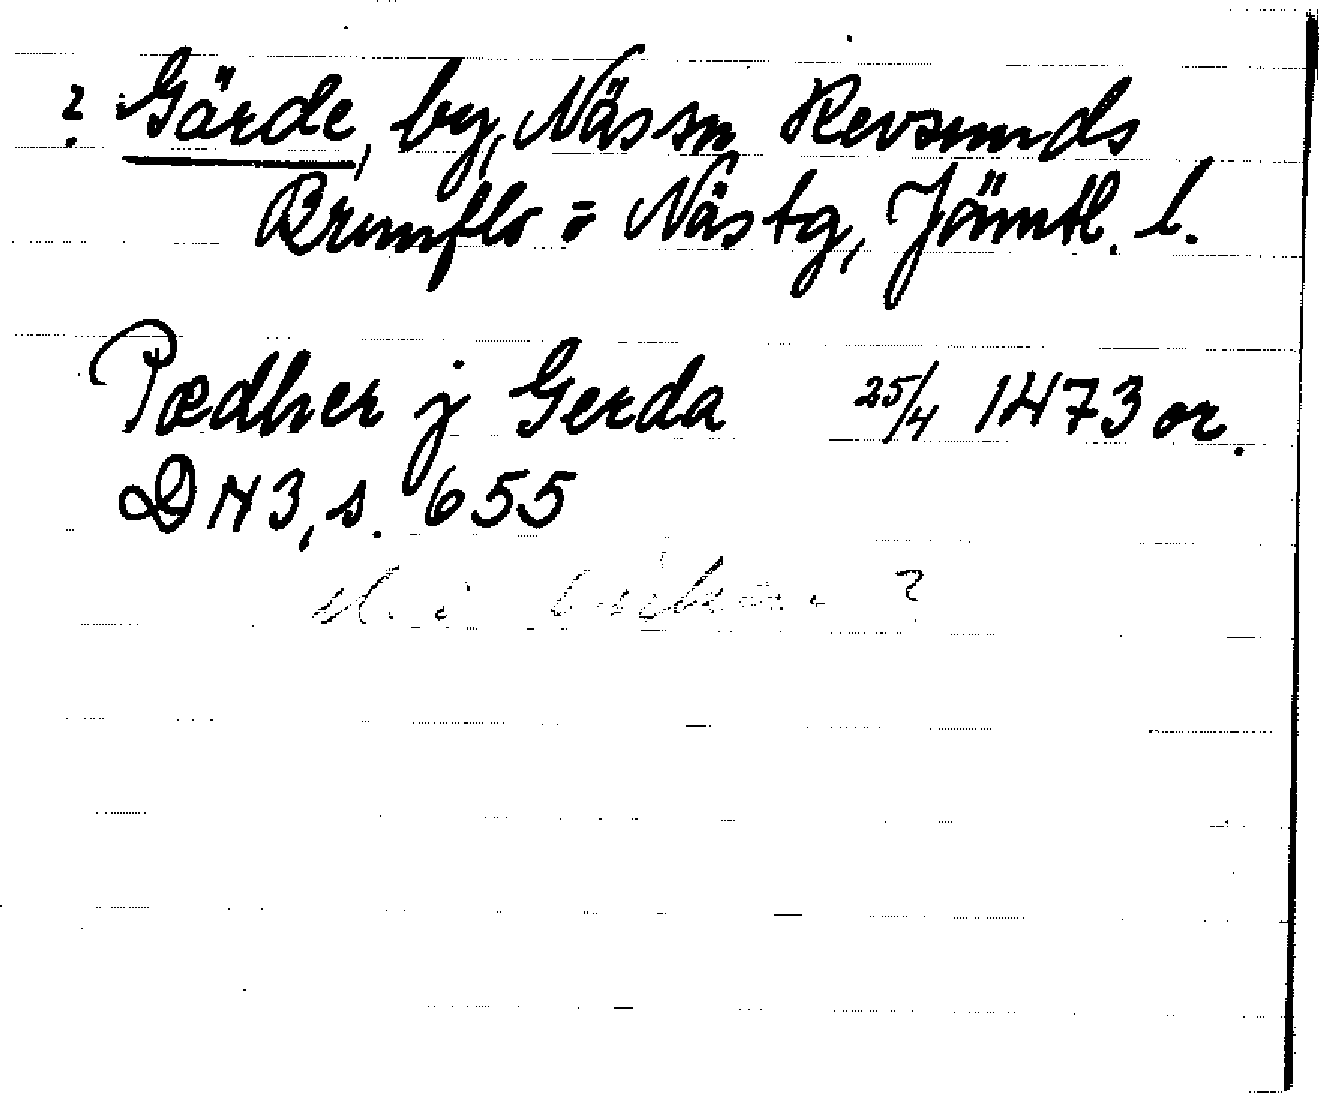 ? Gärde, by, Näs sn Revsunds
Brunflo o Näs tg, Jämtl. l.
Pædher j Gerda 25/4 1473 or.
DN 3, s. 655
el. i ?